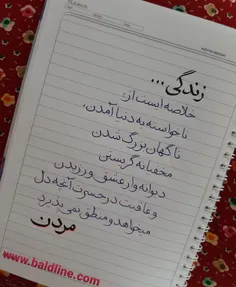 زندگی ...
خلاصه است از:
ناخواسته به دنیا آمدن،
ناگهان بزرگ شدن
مخفیانه گریستن
دیوانه وار عشق ورزیدن
و عاقبت در حسرت آنچه دل
میخواهد و منطق نمی پذیرد
مردن
www.baidline.com